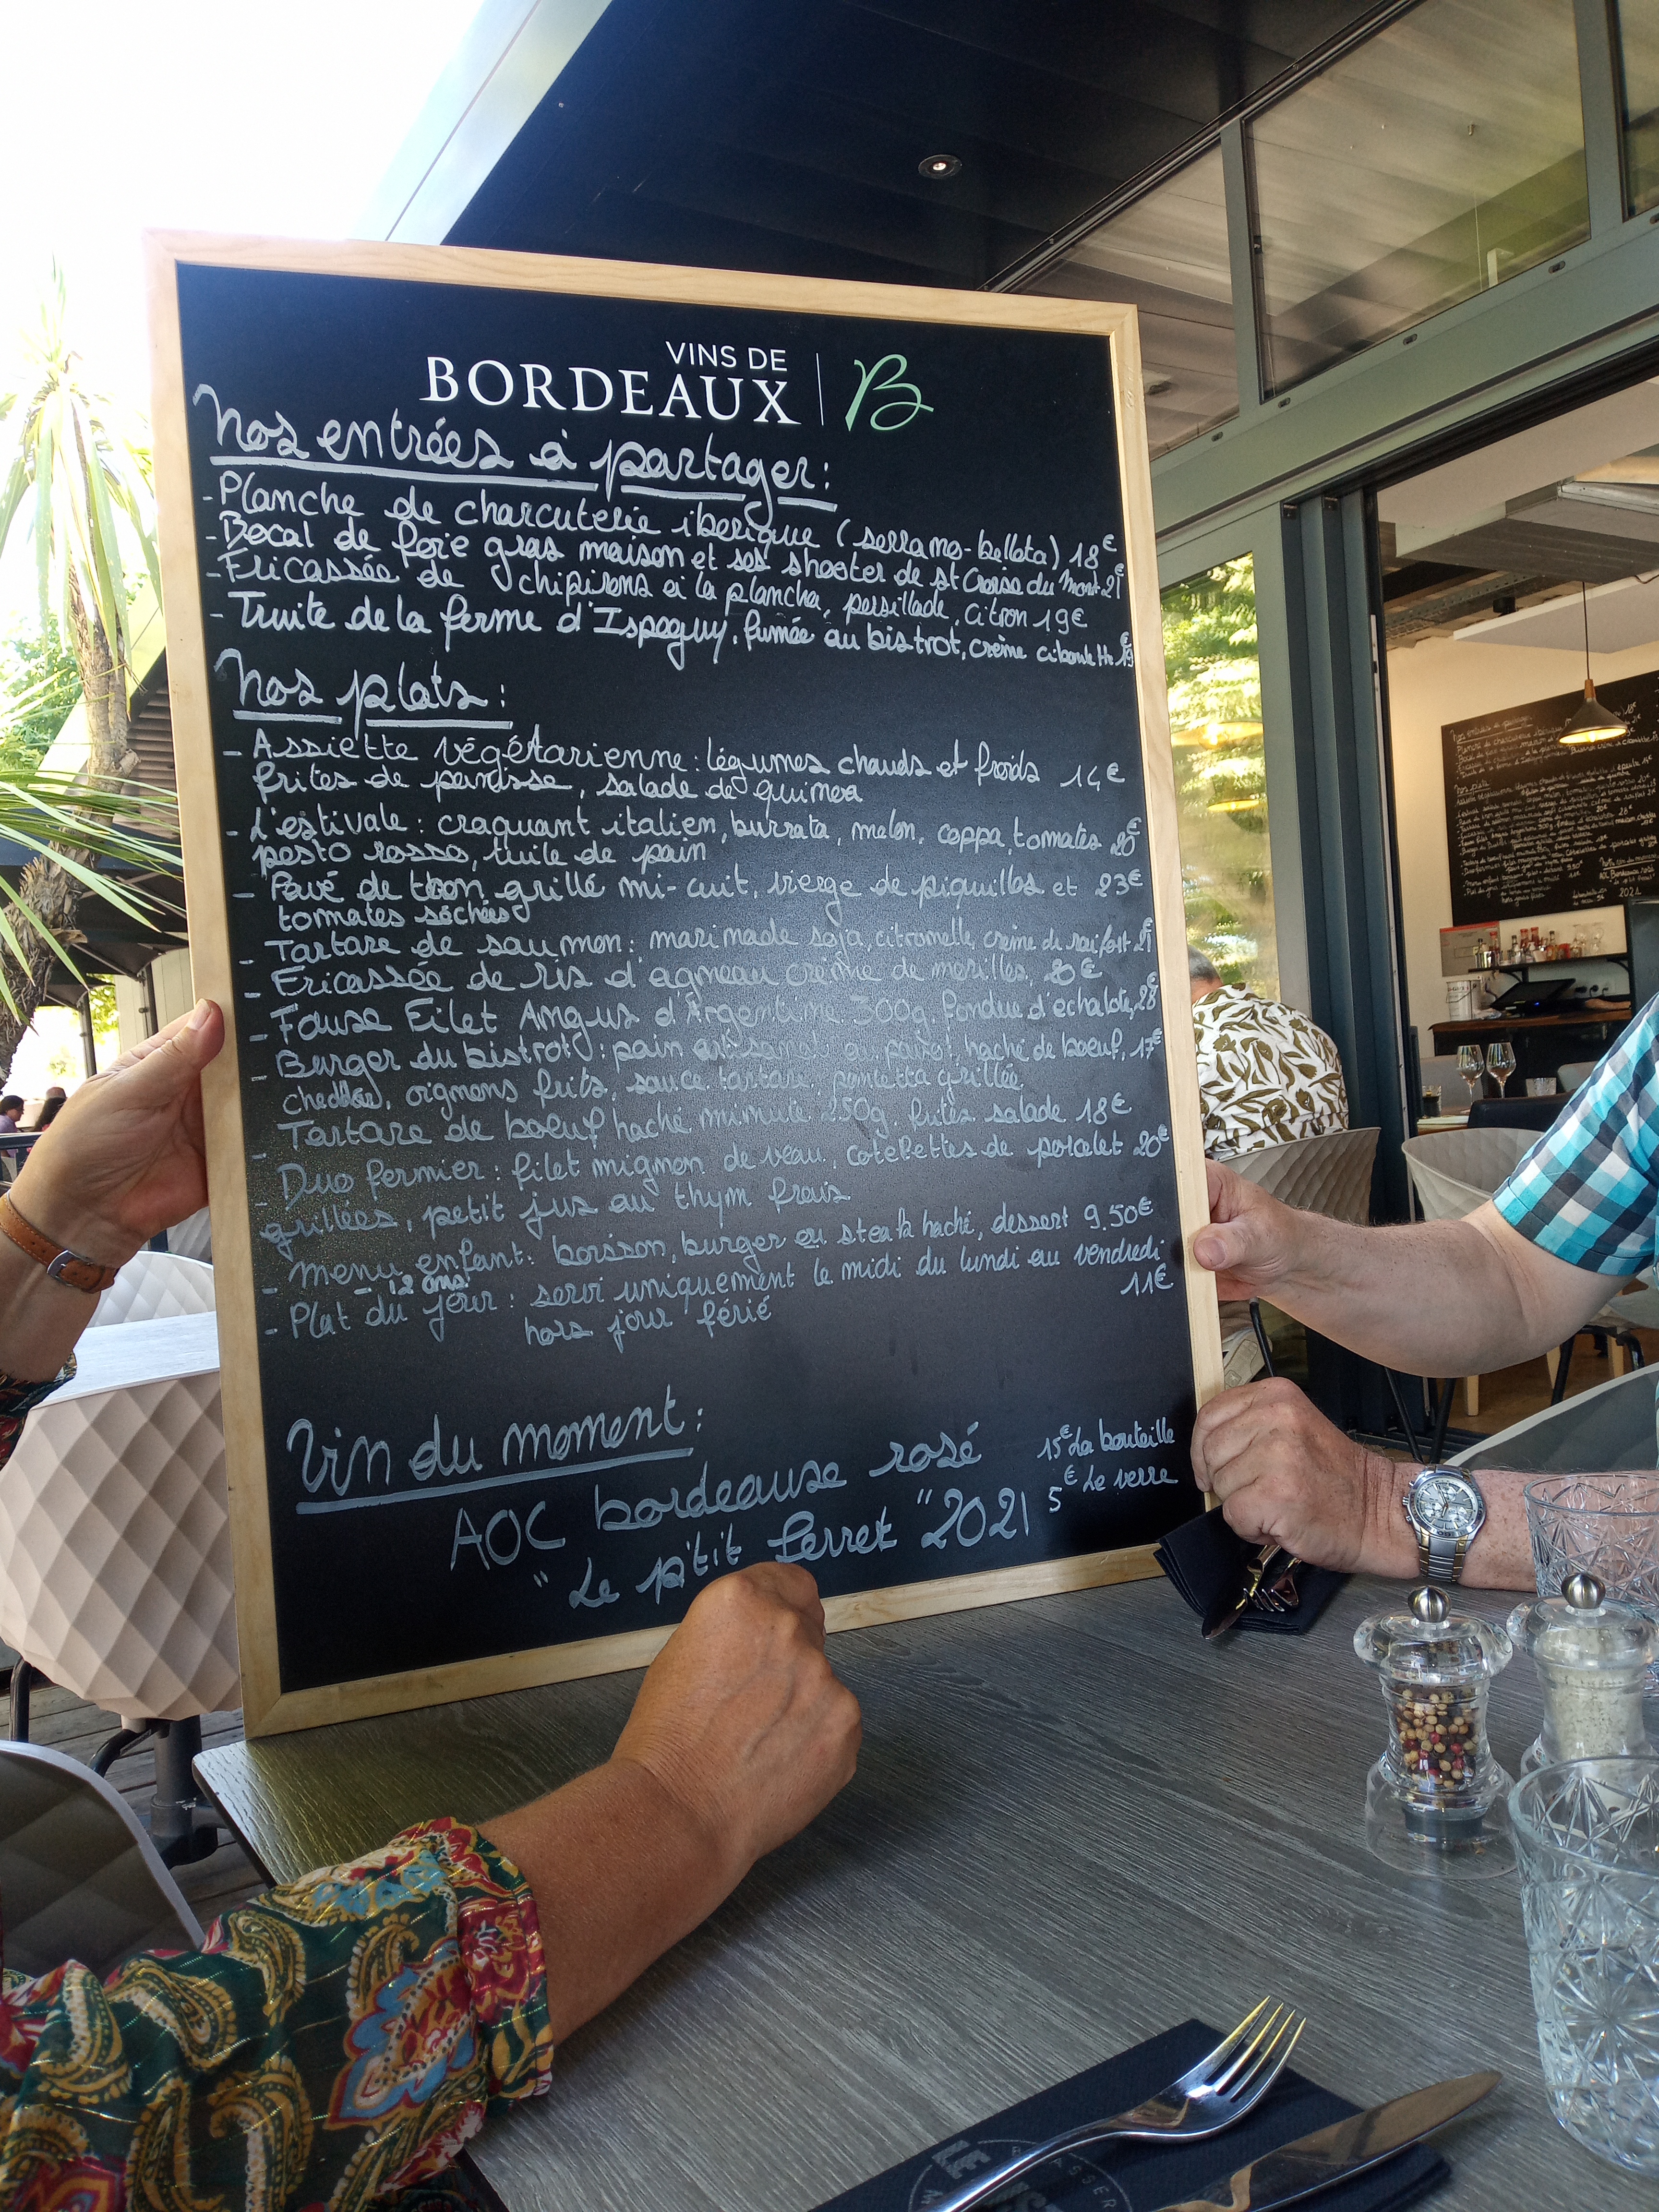 VINS DE
BORDEAUX B
Nos entrées à partager :
- Planche de charcuterie iberique (serrano-bellota) 18€
- Bocal de foie gras maison et ses shooter de St Croix du Mont 21€
- Fricassée de chipirons à la plancha, persillade, citron 19€
- Truite de la ferme d'Ispeguy, fumée au bistrot, crème ciboulette 19€
Nos plats :
- Assiette végétarienne : légumes chauds et froids 14€
frites de panisse, salade de quinoa
- L'estivale : craquant italien, burrata, melon, coppa, tomates 20€
pesto rosso, tuile de pain
- Pavé de thon grillé mi-cuit, vierge de piquillos et 23€
tomates séchées
- Tartare de saumon : marinade soja, citronelle, crème de raifort 21€
- Fricassée de ris d'agneau crème de morilles, 20€
- Fause Filet Angus d'Argentine 300g, fondue d'échalote, 28€
- Burger du bistrot : pain artisanal au pavot, haché de boeuf, 17€
cheddar, oignons frits, sauce tartare, pancetta grillée
- Tartare de boeuf haché minute 250g, frites salade 18€
- Duo fermier : filet mignon de veau, cotelettes de porcelet 20€
grillées, petit jus au thym frais
- Menu enfant : boisson, burger ou steak haché, dessert 9.50€
- 12 ans
- Plat du jour : servi uniquement le midi du lundi au vendredi
hors jour férié 11€
Vin du moment :
AOC bordeaux rosé 15€ La bouteille
"Le p'tit Ferret" 2021 5€ Le verre